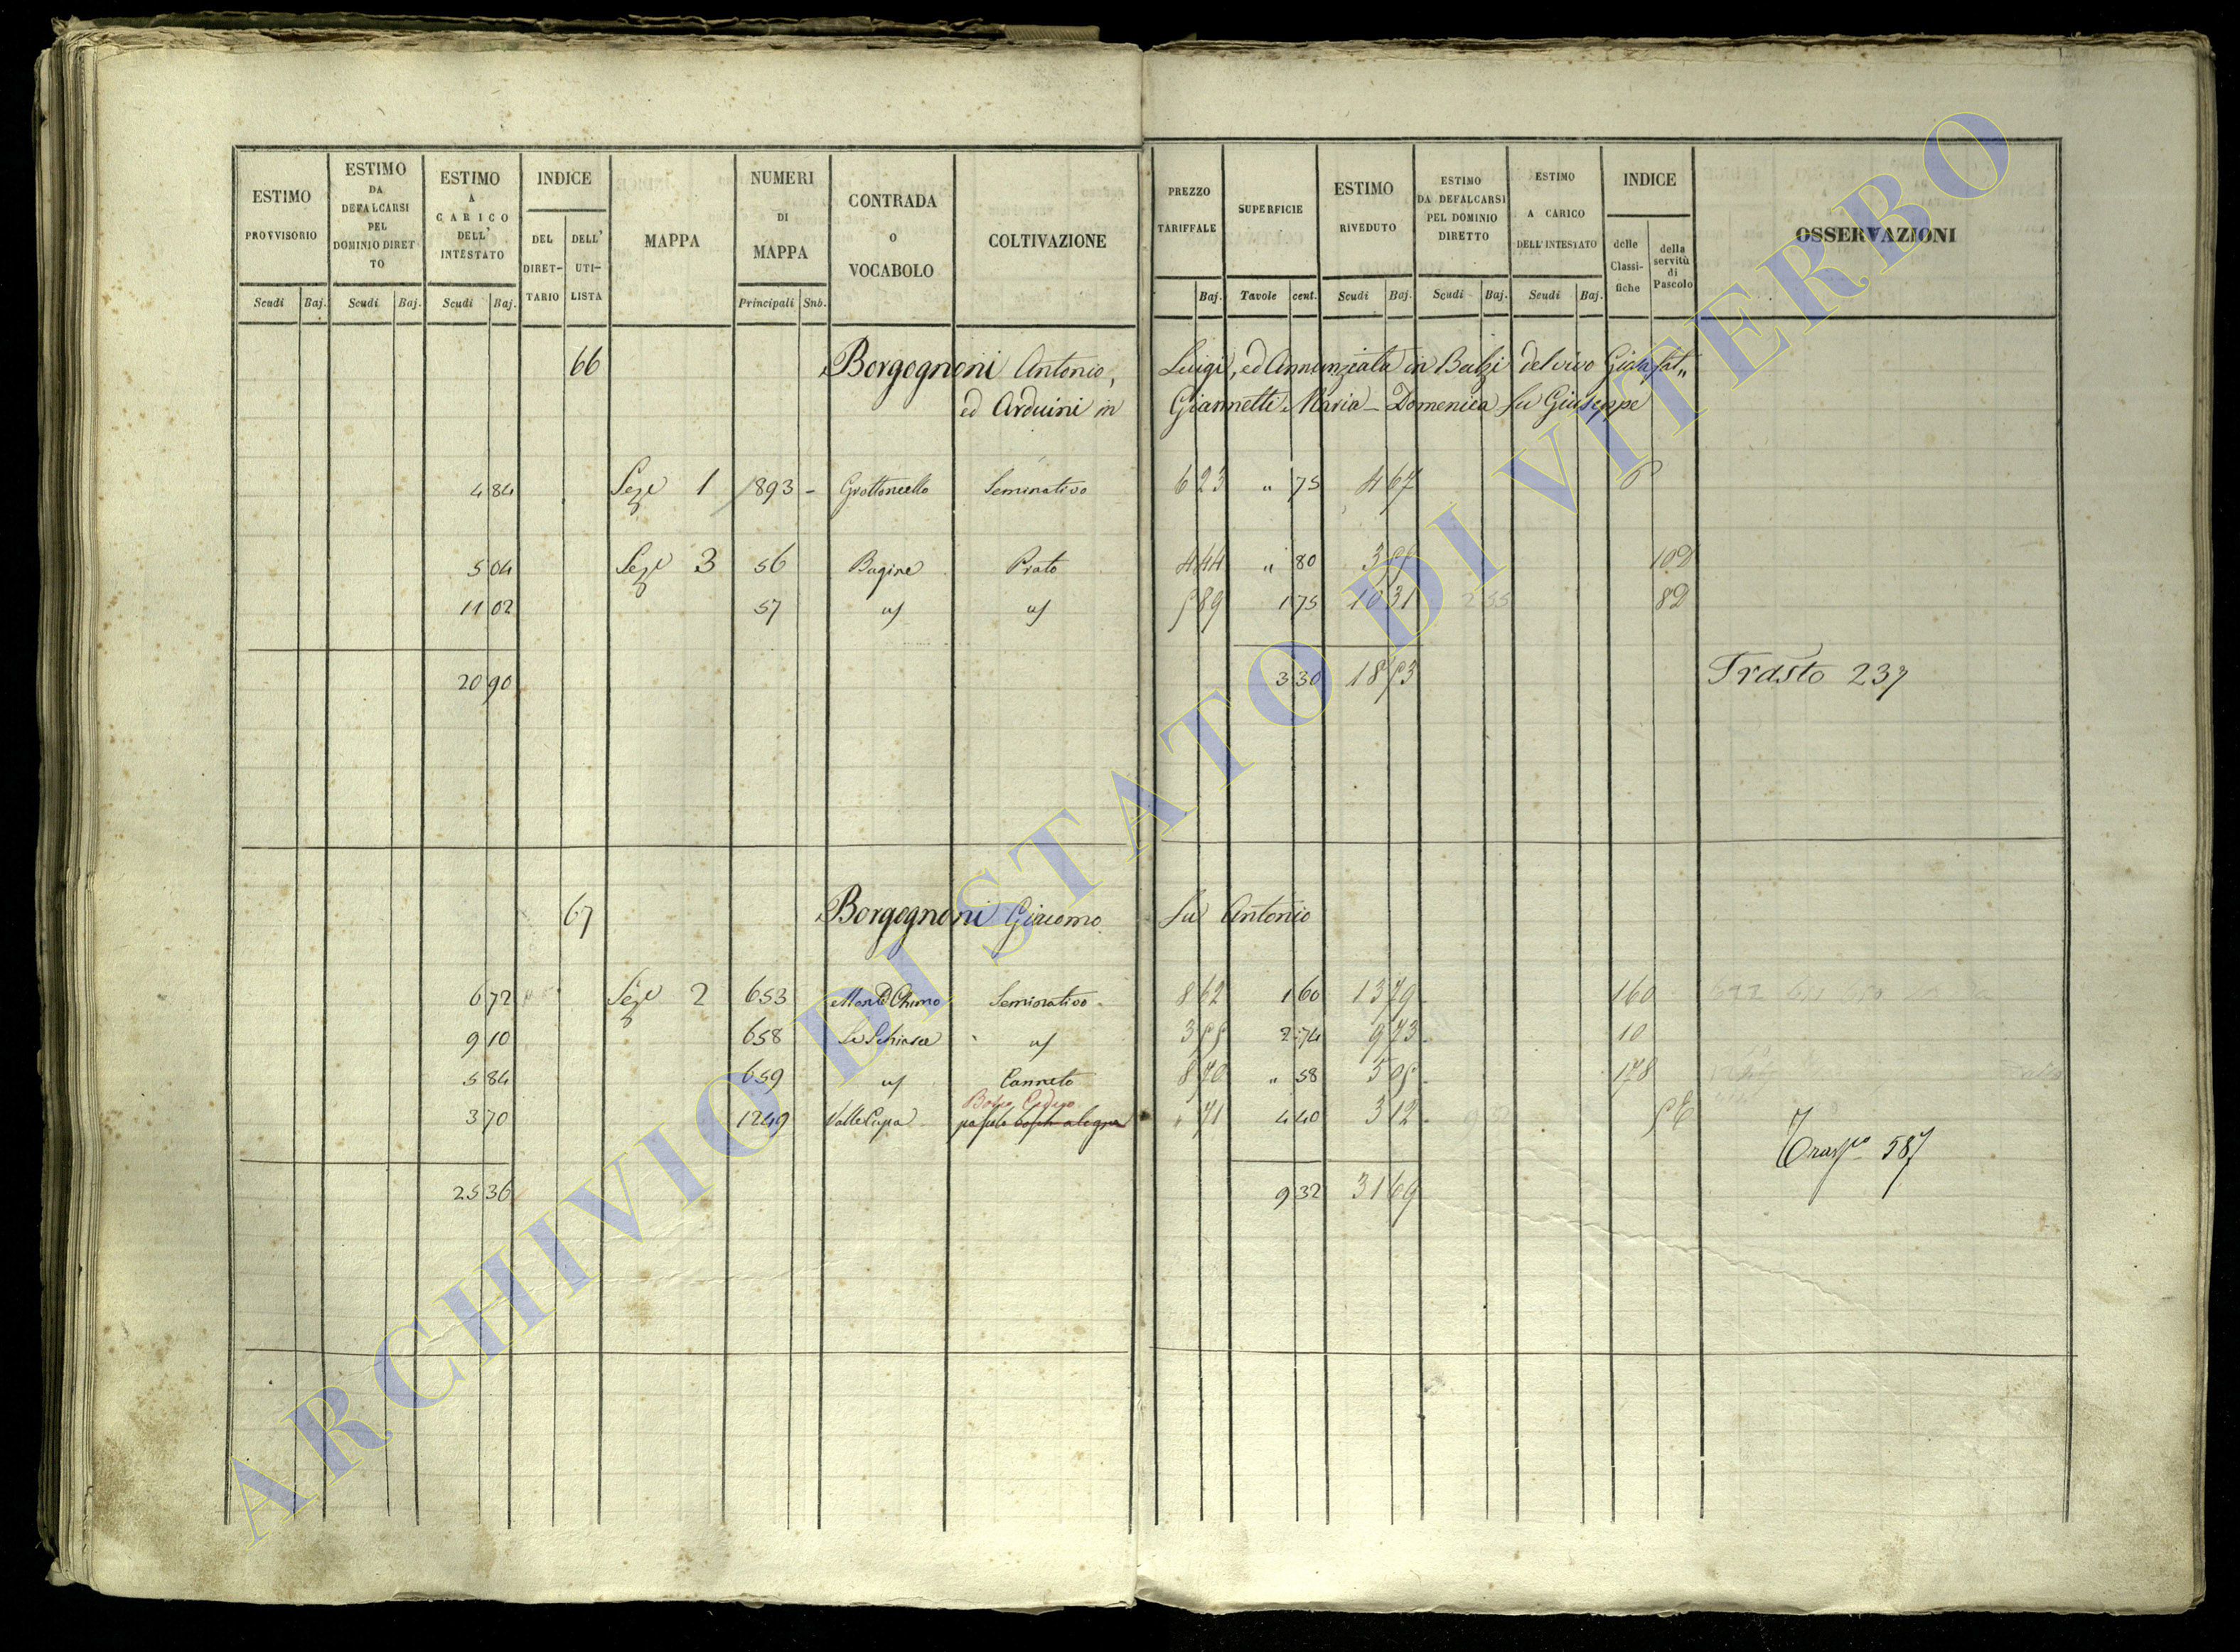 ESTIMO PROVVISORIO
ESTIMO DA DEFALCARSI PEL DOMINIO DIRETTO
ESTIMO A CARICO DELL' INTESTATO
INDICE
DEL DIRET-TARIO
DELL' UTI-LISTA
MAPPA
NUMERI DI MAPPA
CONTRADA O VOCABOLO
COLTIVAZIONE
PREZZO TARIFFALE
SUPERFICIE
ESTIMO RIVEDUTO
ESTIMO DA DEFALCARSI PEL DOMINIO DIRETTO
ESTIMO A CARICO DELL'INTESTATO
INDICE
delle Classi-fiche
della servitù di Pascolo
OSSERVAZIONI
Scudi Baj. Scudi Baj. Scudi Baj. Principali Sub. Baj. Tavole cent. Scudi Baj. Scudi Baj. Scudi Baj.
66 Borgognoni Antonio, Luigi, ed Annunziata in Balzi del vivo Giosafat „
ed Arduini in Giannetti Maria-Domenica fu Giuseppe
4 84 Seze 1 1893 - Grottoncello Seminativo 6 23 " 75 4 67
5 04 Seze 3 56 Bagine Prato 4 44 " 80 3 55 10
11 02 57 5 89 1 75 10 31 8
20 90 3 30 18 53 Trasto 237
67 Borgognoni Giacomo fu Antonio
6 72 Seze 2 653 Seminativo 8 62 1 60 13 79 160
9 10 658 3 55 2 74 9 73 10
5 84 659 Canneto 8 70 " 58 5 05 178
Bosco Ceduo
3 70 1249 Valle Cupa " 71 4 40 3 12
25 36 9 32 31 69 587
ARCHIVIO DI STATO DI VITERBO